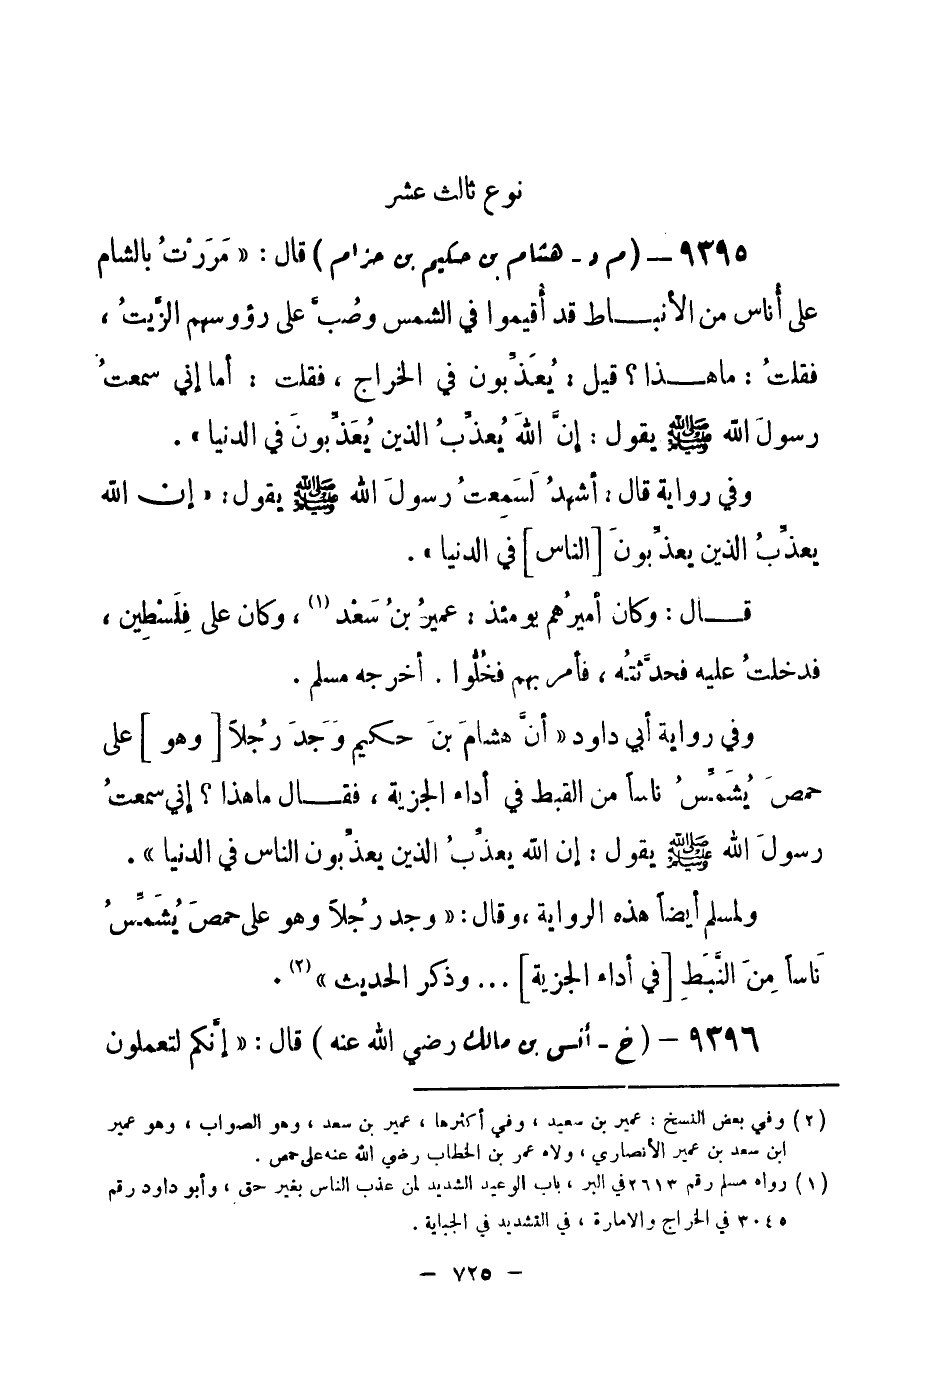 نوع ثالث عشر
٩٣٩٥ – ( م د - هشام بن حكيم بن حزام ) قال : « مَرَرْتُ بالشام
على أُناس من الأنبــاط قد أُقيموا في الشمس وصُبَّ على رؤوسهم الزَّيتُ ،
فقلتُ : ماهــذا ؟ قيل : يُعَذَّبون في الخراج ، فقلت : أما إني سمعتُ
رسولَ الله ﷺ يقول : إنَّ اللهَ يُعذِّبُ الذين يُعَذِّبونَ في الدنيا » .
وفي رواية قال : أشهدُ لَسَمِعتُ رسولَ الله ﷺ يقول : « إن الله
يعذِّبُ الذين يعذِّبونَ [الناس] في الدنيا » .
قــال : وكان أميرُهم يومئذ : عميرُ بنُ سَعْد (١) ، وكان على فِلَسْطِين ،
فدخلتُ عليه فحدَّثتهُ ، فأمر بهم فخُلُّوا . أخرجه مسلم .
وفي رواية أبي داود « أنَّ هشامَ بنَ حكيم وَجَدَ رجُلاً [ وهو ] على
حمصَ يُشَمِّسُ ناساً من القبط في أداء الجزية ، فقــال ماهذا ؟ إني سمعتُ
رسولَ الله ﷺ يقول : إن الله يعذِّبُ الذين يعذِّبون الناس في الدنيا » .
ولمسلم أيضاً هذه الرواية ،وقال : « وجد رجُلاً وهو على حمصَ يُشَمِّسُ
نَاساً مِنَ النَّبَطِ [في أداء الجزية] ... وذكر الحديث » (٢) .
٩٣٩٦ – ( خ - أنس بن مالك رضي الله عنه ) قال : « إنَّكم لتعملون
(٢) وفي بعض النسخ : عمير بن سعيد ، وفي أكثرها ، عمير بن سعد ، وهو الصواب ، وهو عمير
ابن سعد بن عمير الأنصاري ، ولاه عمر بن الخطاب رضي الله عنه على حمص .
(١) رواه مسلم رقم ٢٦١٣ في البر ، باب الوعيد الشديد لمن عذب الناس بغير حق ، وأبو داود رقم
٣٠٤٥ في الخراج والامارة ، في التشديد في الجباية .
– ٧٢٥ –